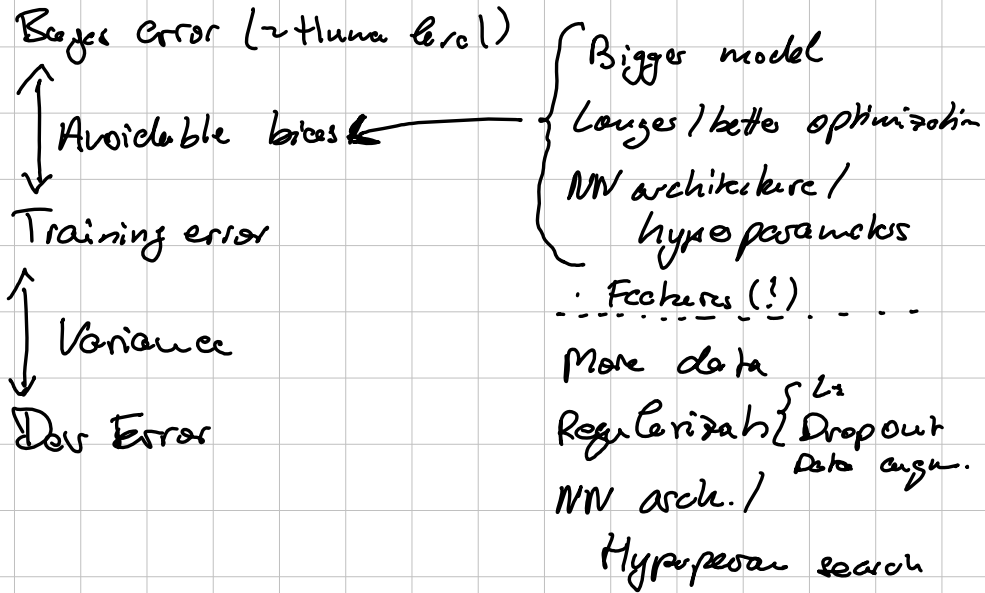 Bayes error (~Human level)
Avoidable bias
Training error
Variance
Dev Error
Bigger model
Longer/better optimization
NN architecture/
hyperparameters
· Features (!)
More data
Regularizat {
L2
Dropout
Data augm.
NN arch. /
Hyperparam search